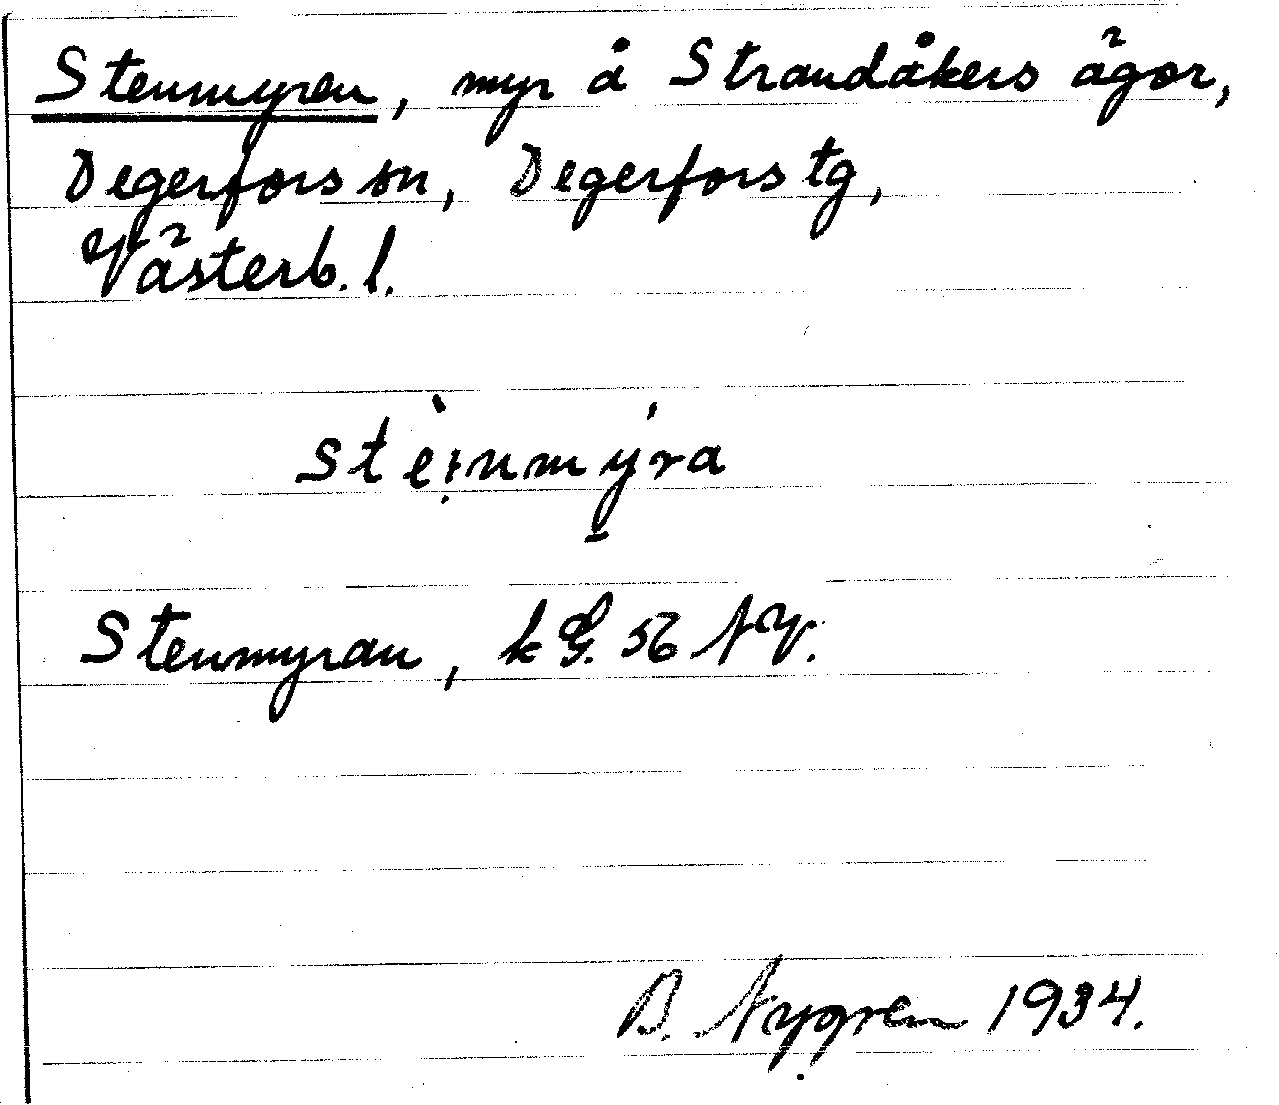 Stenmyren, myr å Strandåkers ägor,
Degerfors sn, Degerfors tg,
Västerb. l.
stei̩nmýra
Stenmyran, kG. 56 NV.
B. Nygren 1934.